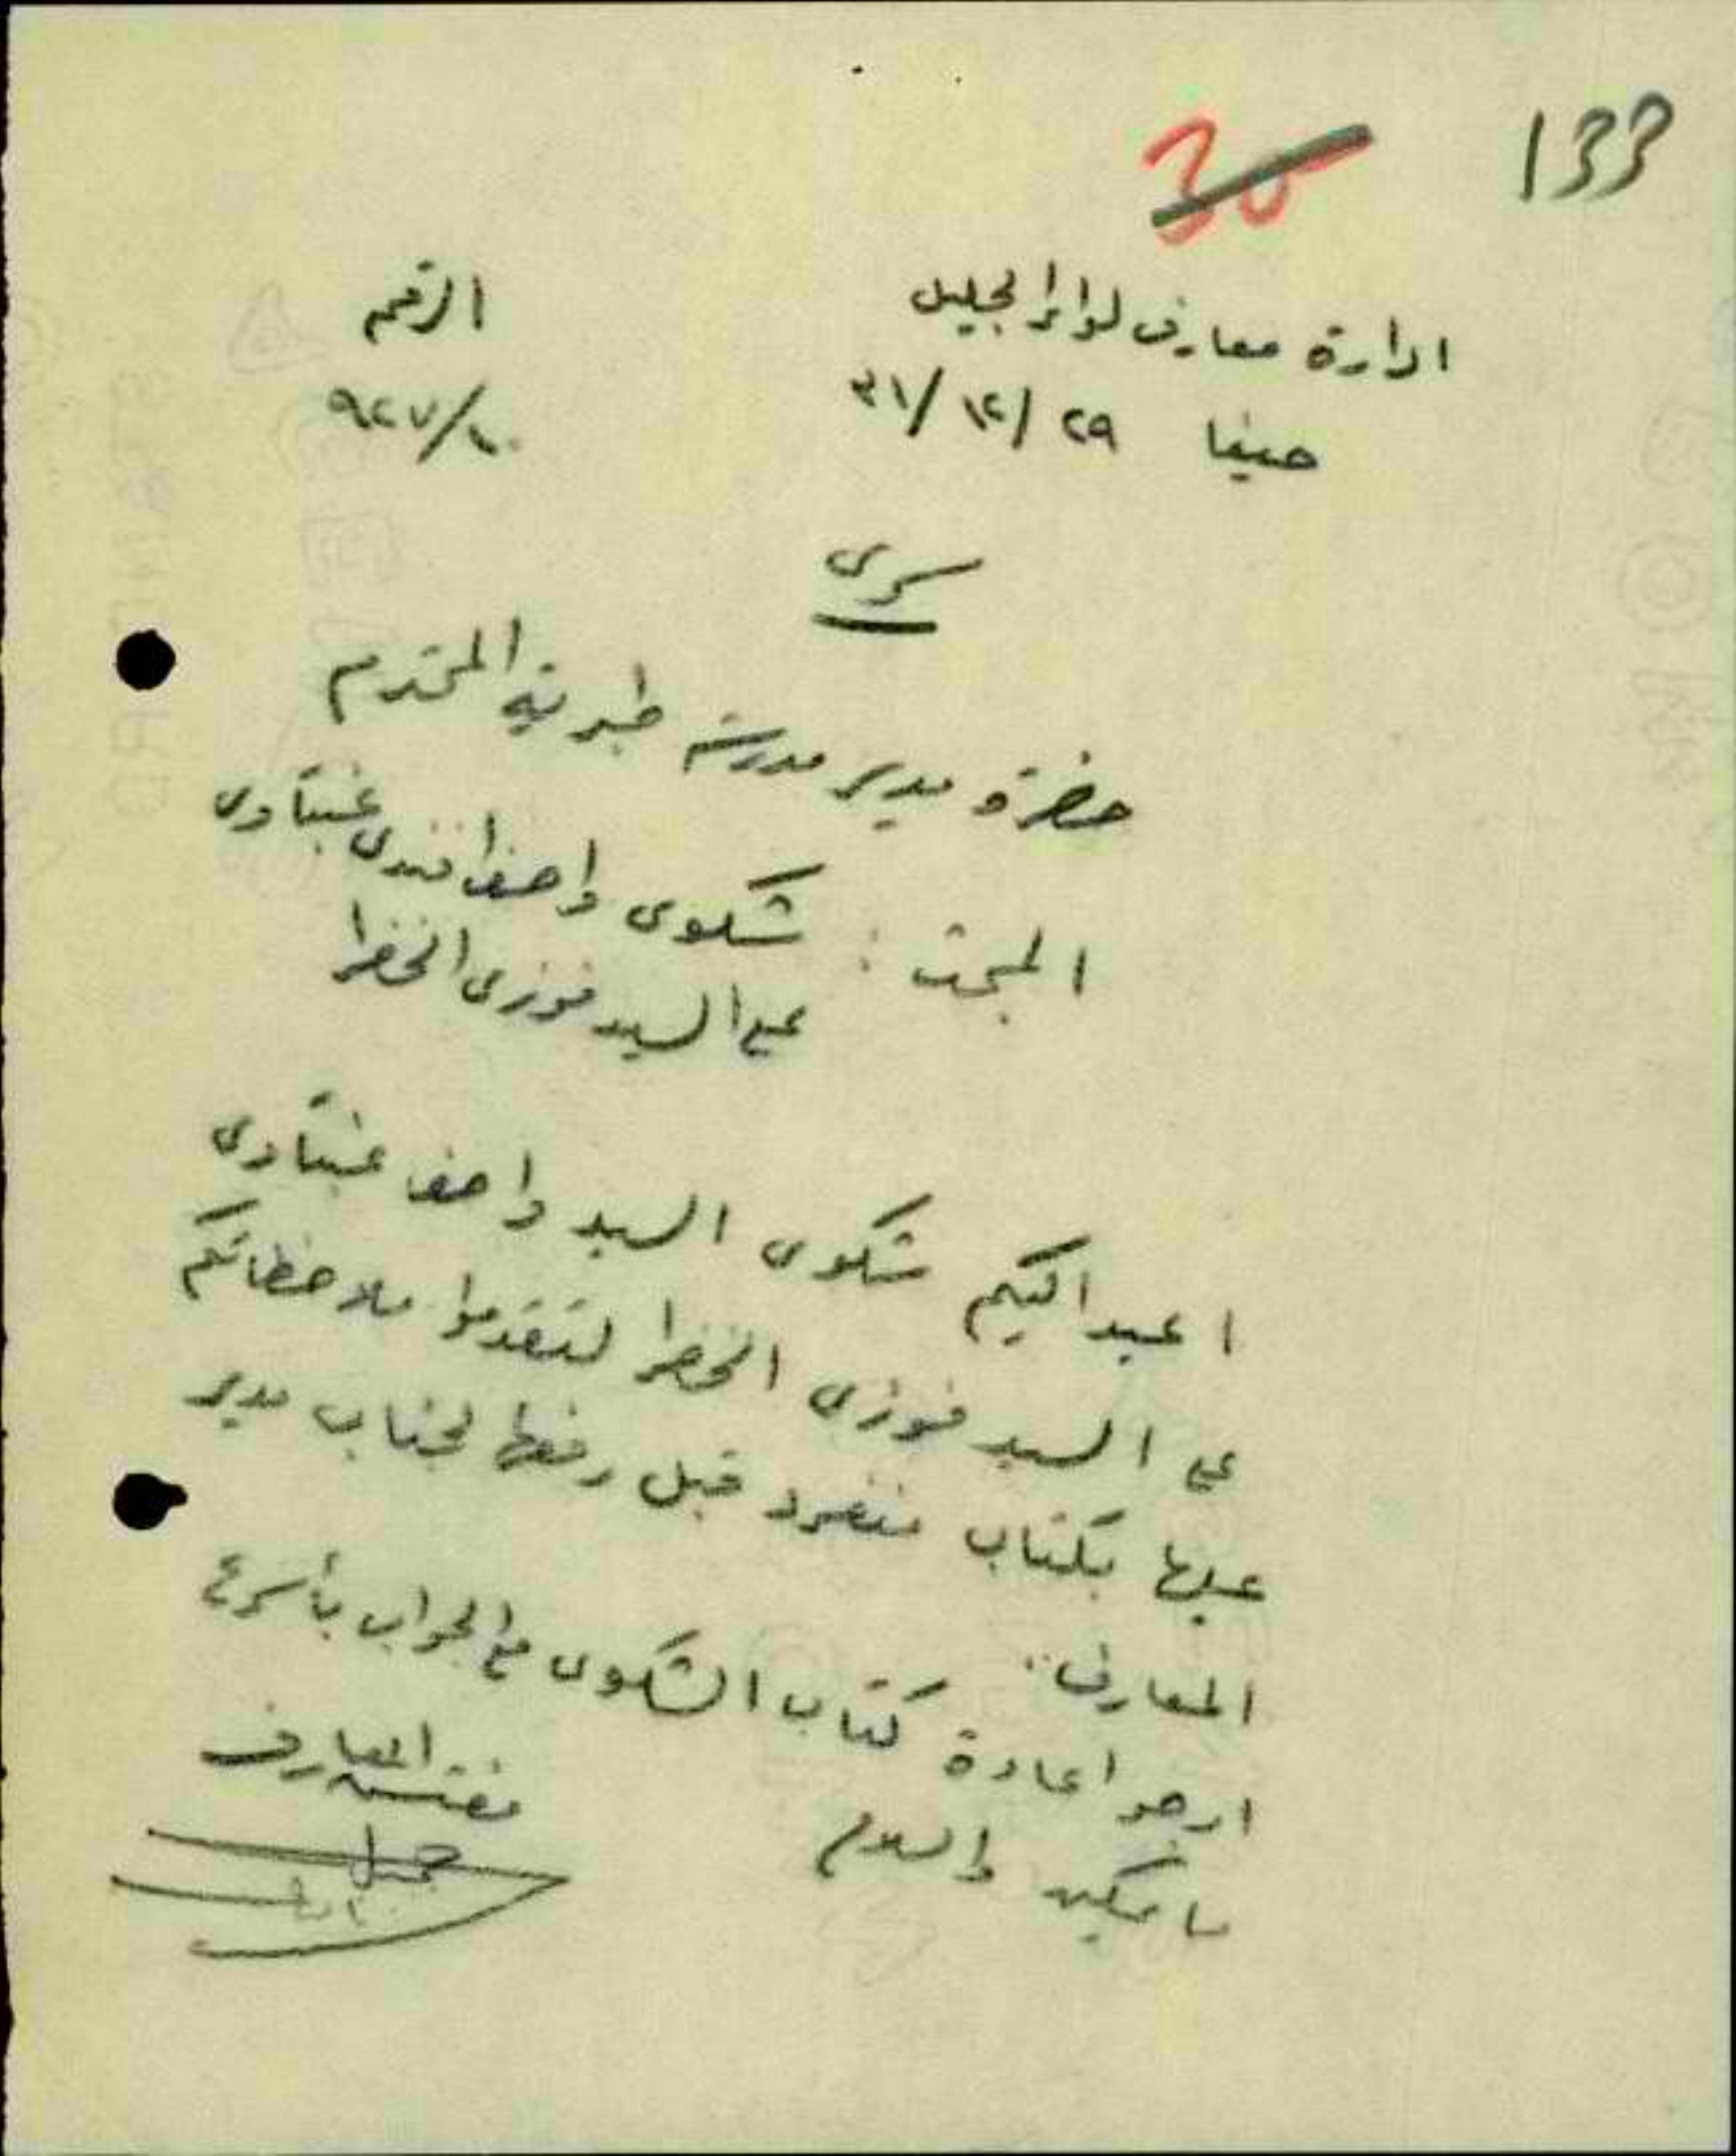 133
35
ادارة معارف لواء الجليل
الرقم
حيفا ٢٩/ ١٢/ ٣١
٩٢٧/١٠
سرى
حضرة مدير مدرسة طبرية المحترم
المبحث : شكوى واصف افندى عنبتاوى
على السيد فوزى الخضرا
اعيد اليكم شكوى السيد واصف عنبتاوى
على السيد فوزى الخضرا لتقدموا ملاحظاتكم
عليها بكتاب منفرد قبل رفعها لجناب مدير
المعارف.
ارجو اعادة كتاب الشكوى مع الجواب بأسرع
ما يمكن والسلام
مفتش المعارف
جميل